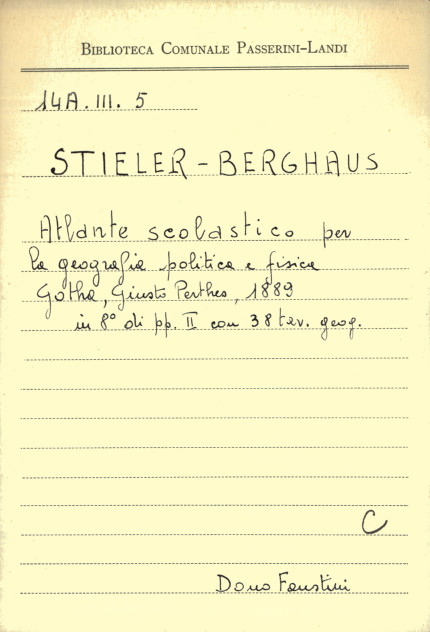 BIBLIOTECA COMUNALE PASSERINI-LANDI
14A. III. 5
STIELER - BERGHAUS
Atlante scolastico per
la geografia politica e fisica
Gotha, Giusto Perthes, 1889
in 8° di pp. II con 38 tav. geog.
C
Dono Faustini